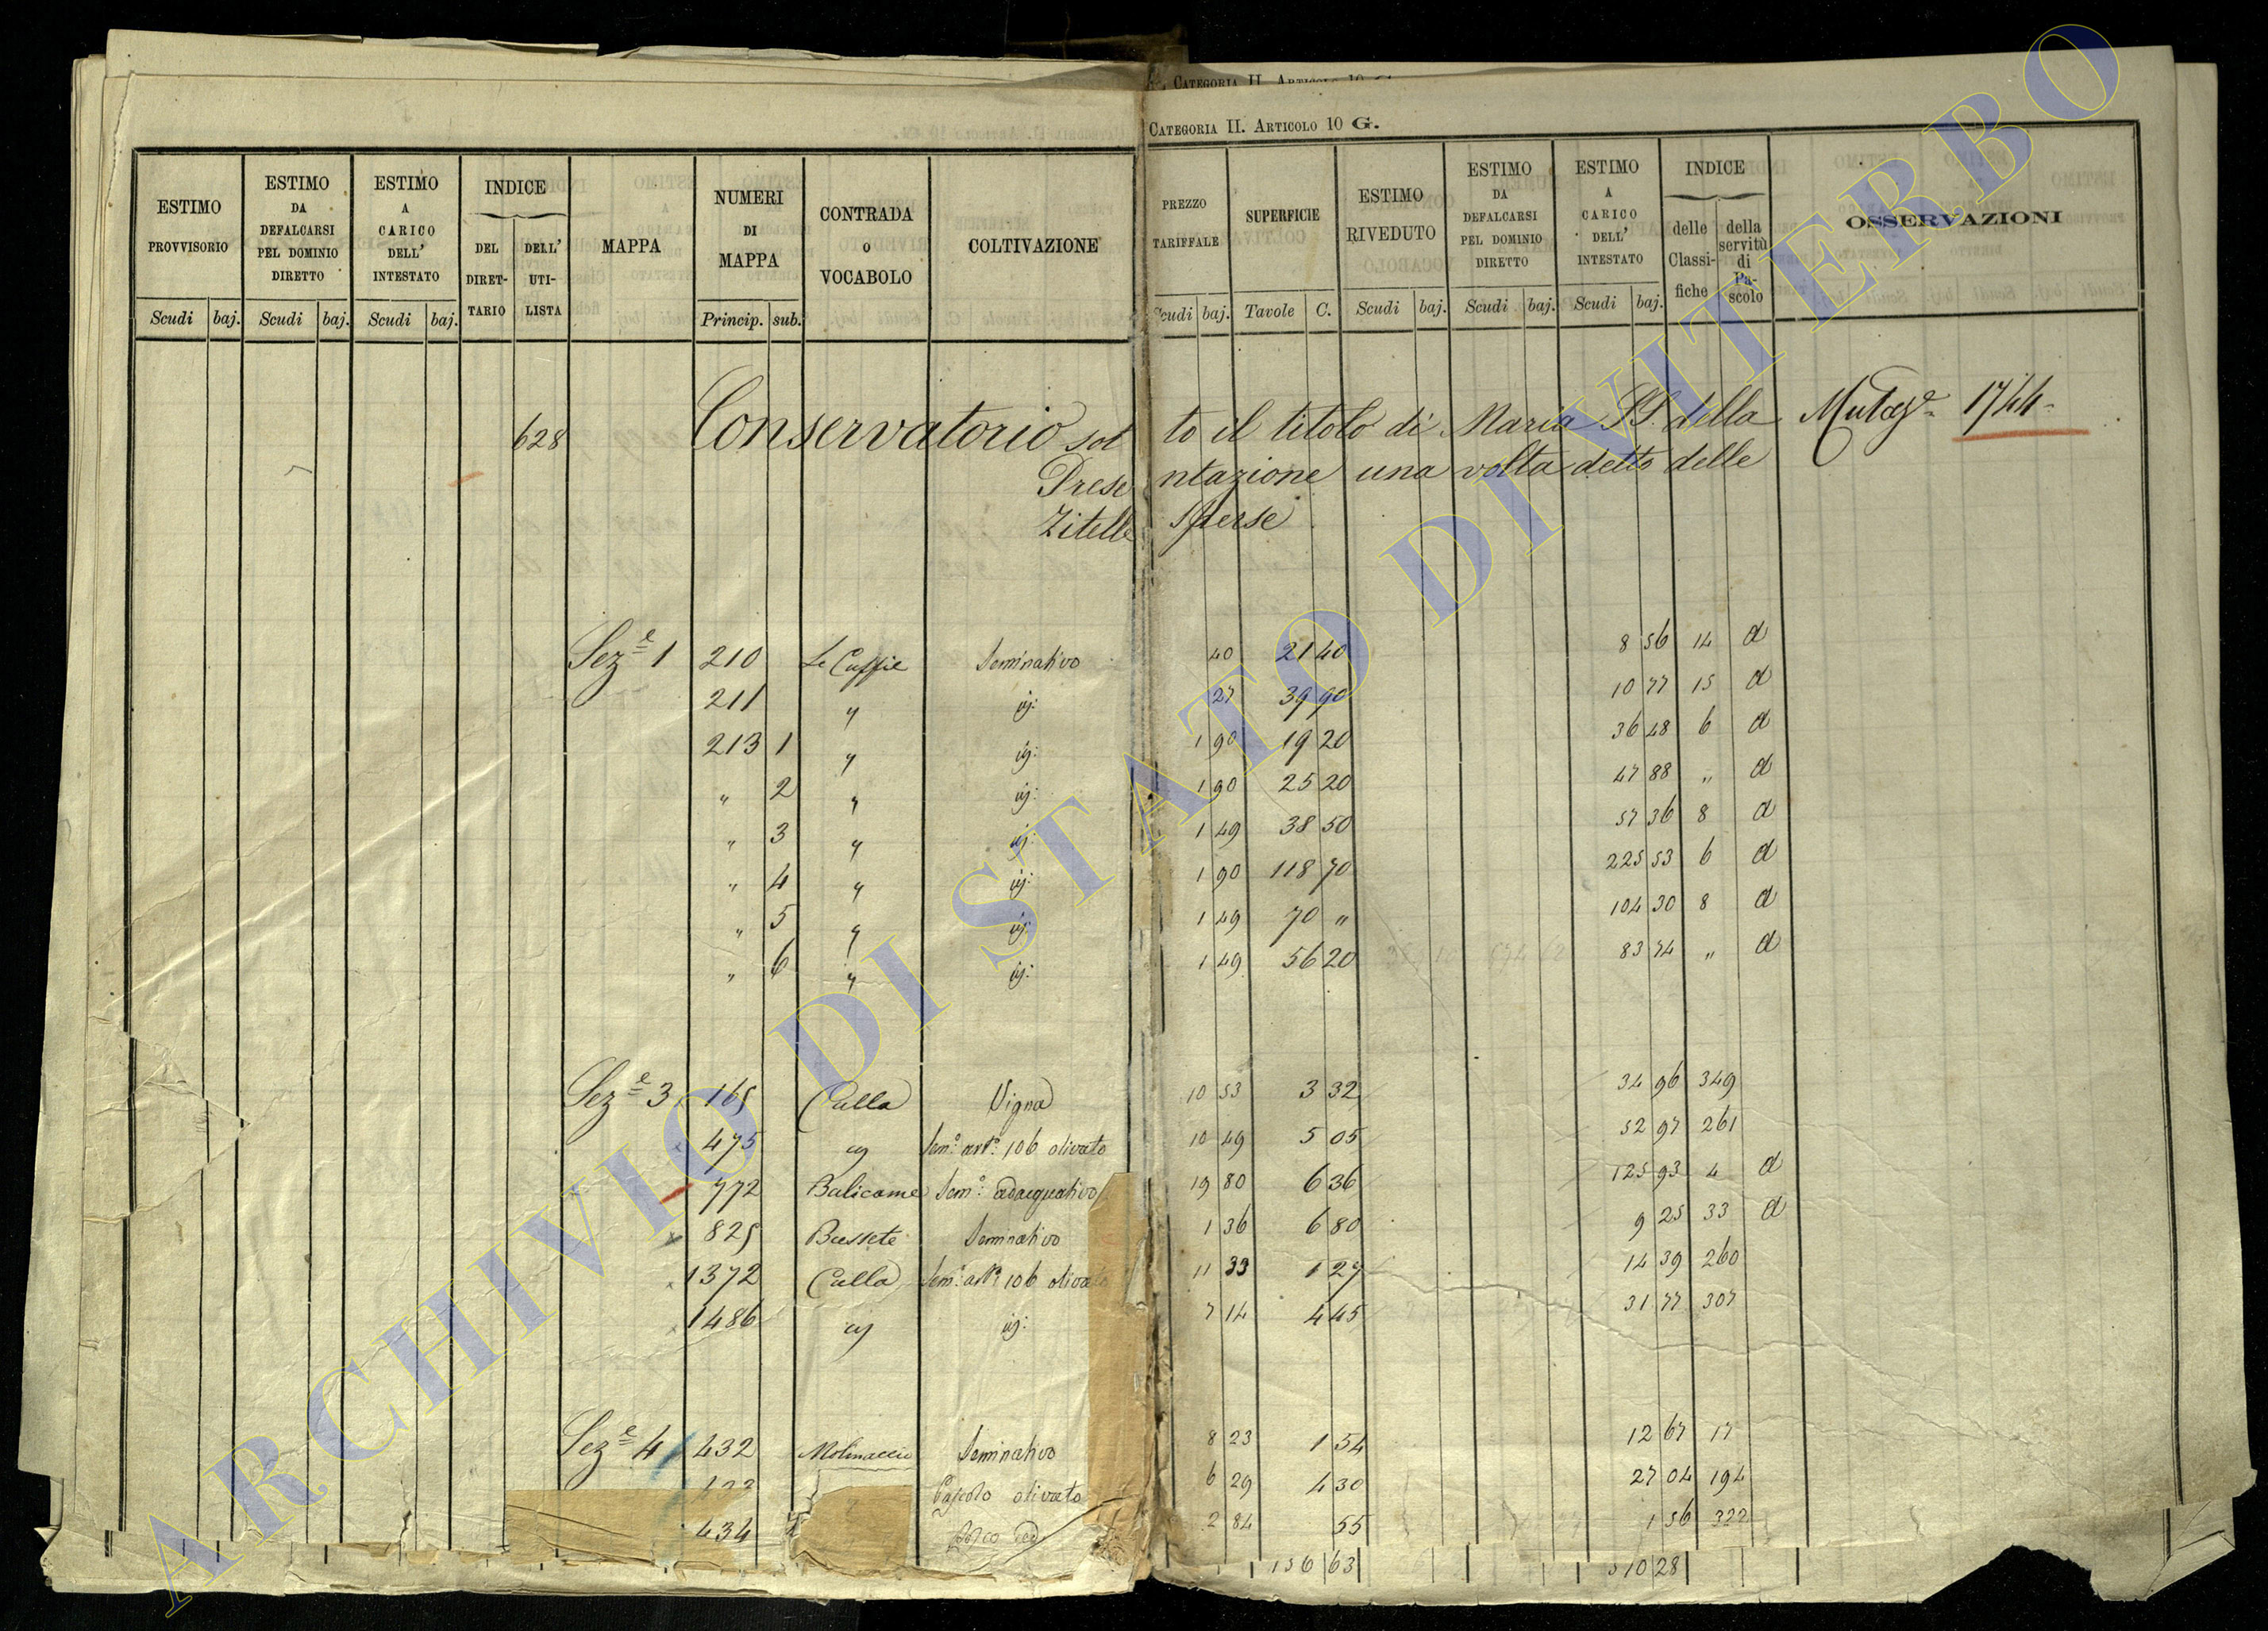 CATEGORIA II. ARTICOLO 10 G.
CATEGORIA II. ARTICOLO 10 G.
ESTIMO PROVVISORIO Scudi baj.
ESTIMO DA DEFALCARSI PEL DOMINIO DIRETTO Scudi baj.
ESTIMO A CARICO DELL' INTESTATO Scudi baj.
INDICE DEL DIRET-TARIO DELL' UTI-LISTA
MAPPA
NUMERI DI MAPPA Princip. sub.
CONTRADA O VOCABOLO
COLTIVAZIONE
PREZZO TARIFFALE Scudi baj.
SUPERFICIE Tavole C.
ESTIMO RIVEDUTO Scudi baj.
ESTIMO DA DEFALCARSI PEL DOMINIO DIRETTO Scudi baj.
ESTIMO A CARICO DELL' INTESTATO Scudi baj.
INDICE delle Classi-fiche della servitù di Pa-scolo
OSSERVAZIONI
628 Conservatorio sotto il titolo di Maria SS. della 1744
Presentazione una volta detto delle
Zitelle Sperse
Seze 1 210 Le Cuffie Seminativo 40 21 40 8 56 14 d
211 " id: 27 39 90 10 77 15 d
213 1 " id: 1 90 19 20 36 48 6 d
" 2 " id: 1 90 25 20 47 88 " d
" 3 " id: 1 49 38 50 57 36 8 d
" 4 " id: 1 90 118 70 225 53 6 d
" 5 " id: 1 49 70 " 104 30 8 d
" 6 " id: 1 49 56 20 83 74 " d
Seze 3 165 Culla Vigna 10 53 3 32 34 96 349
475 id Semo: arto: 106 olivato 10 49 5 05 52 97 261
772 Bulicame Semo: adacquativo 19 80 6 36 125 93 4 d
825 Bussete Seminativo 1 36 6 80 9 25 33 d
1372 Culla Semo: arto 106 olivato 11 33 1 27 14 39 260
1486 id id: 7 14 4 45 31 77 307
Seze 4 432 Molinaccio Seminativo 8 23 1 54 12 67 17
Pascolo olivato 6 29 4 30 27 04 194
434 2 84 55 1 56 322
156 63 510 28
ARCHIVIO DI STATO DI VITERBO